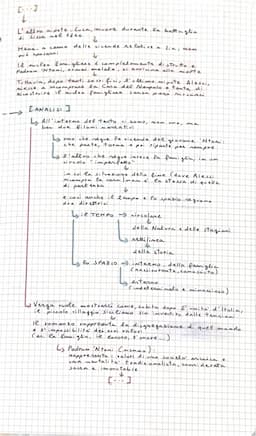 [...]
L'altro nipote, Luca, muore durante la battaglia
di Lissa nel 1866
Mena, a causa delle vicende relative a Lia, non
può sposarsi
Il nucleo famigliare è completamente distrutto e
Padron 'Ntoni, ormai malato, si avvicina alla morte
Tuttavia, dopo tanti sacrifici, l'ultimo nipote Alessi,
riesce a ricomprare la Casa del Nespolo e tenta di
ricostruire il nucleo famigliare
[ANALISI]
All'interno del testo ci sono, non uno, ma
ben due filoni narrativi
uno che segue le vicende del giovane 'Ntoni,
che parte, torna e poi riparte per sempre
l'altro che segue invece la famiglia, in un
circolo "imperfetto"
in cui la situazione della fine (dove Alessi
ricompra la casa) non è la stessa di quella
di partenza
e così anche il tempo e lo spazio seguono
due direttrici
IL TEMPO → circolare
della Natura e delle stagioni
rettilinea
della storia
LO SPAZIO → interno - della famiglia
(rassicurante, conosciuto)
esterno
(indeterminato e minaccioso)
Verga vuole mostrarci come, subito dopo l'unità d'Italia,
il piccolo villaggio siciliano sia investito dalle tensioni
Il romanzo rappresenta la disgregazione di quel mondo
e l'impossibilità dei suoi valori
(es. la famiglia, il lavoro, l'onore...)
Padron 'Ntoni (nonno):
rappresenta i valori di una società arcaica e
una mortalità tradizionalista,
saggia e immutabile
[...]